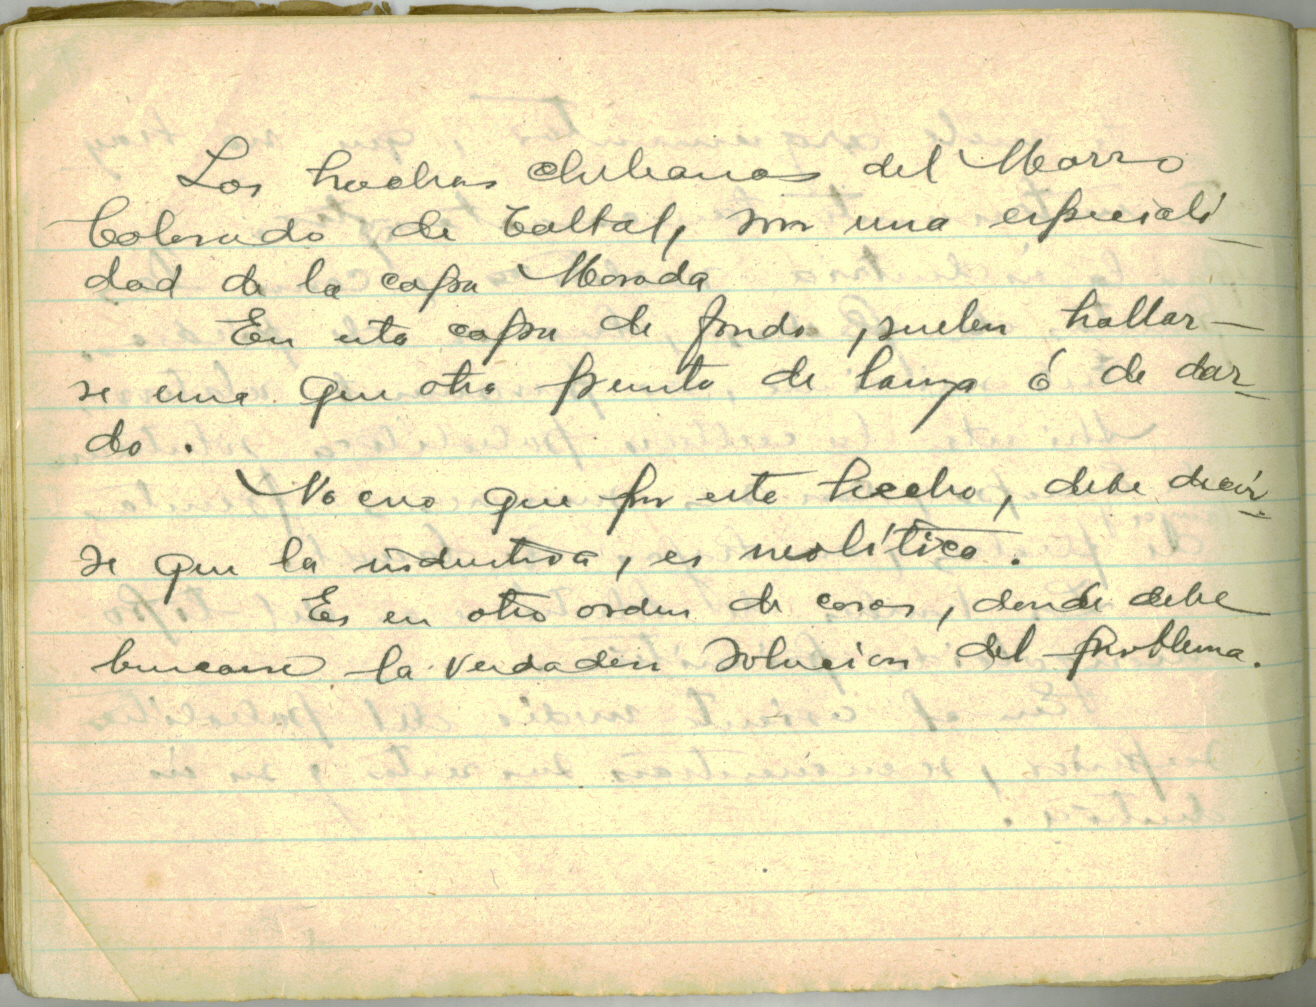 Los hachas chilenas del Morro
Colorado de Taltal, son una especiali-
dad de la capa Morada
En esta capa de fondo, suelen hallar-
se una que otra punta de lanza ó de dar-
do.
No creo que por este hecho, debe decir-
se que la industria, es neolítica.
Es en otro orden de cosas, donde debe
buscarse la verdadera solucion del problema.